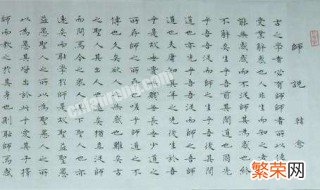 師說 韓愈
古之學者必有師師者所以
受業解惑也人非生而知之
能無惑惑而不從師其為惑也終
不解矣生乎吾前其聞道也固先
乎吾吾從而師之生乎吾後其聞
道也亦先乎吾吾從而師之吾師
道也夫庸知其年之先後生於吾
乎是故無貴無賤無長無少道之
所存師之所存也嗟乎師道之不
傳也久矣欲人之無惑也難矣古
之聖人其出人也遠矣猶且從師
而問焉今之眾人其下聖人也亦
遠矣而恥學於師是故聖益聖愚
益愚聖人之所以為聖愚人之所
以為愚其皆出於此乎愛其子擇
師而教之於其身也則恥師焉惑
繁荣网
bx1993.com